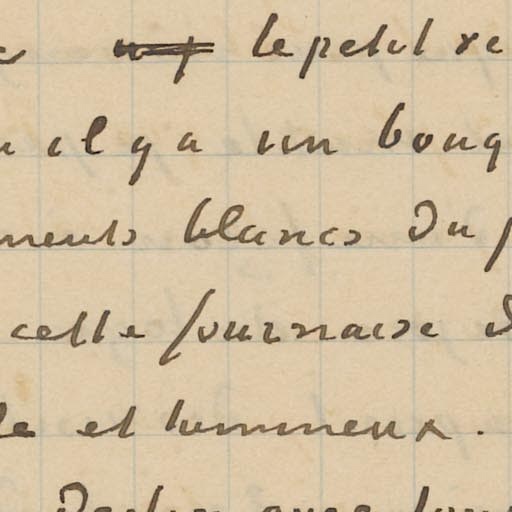 le petit re
il y a un bouq
ments blancs du p
cette fournaise d
le et lumineux.
avec